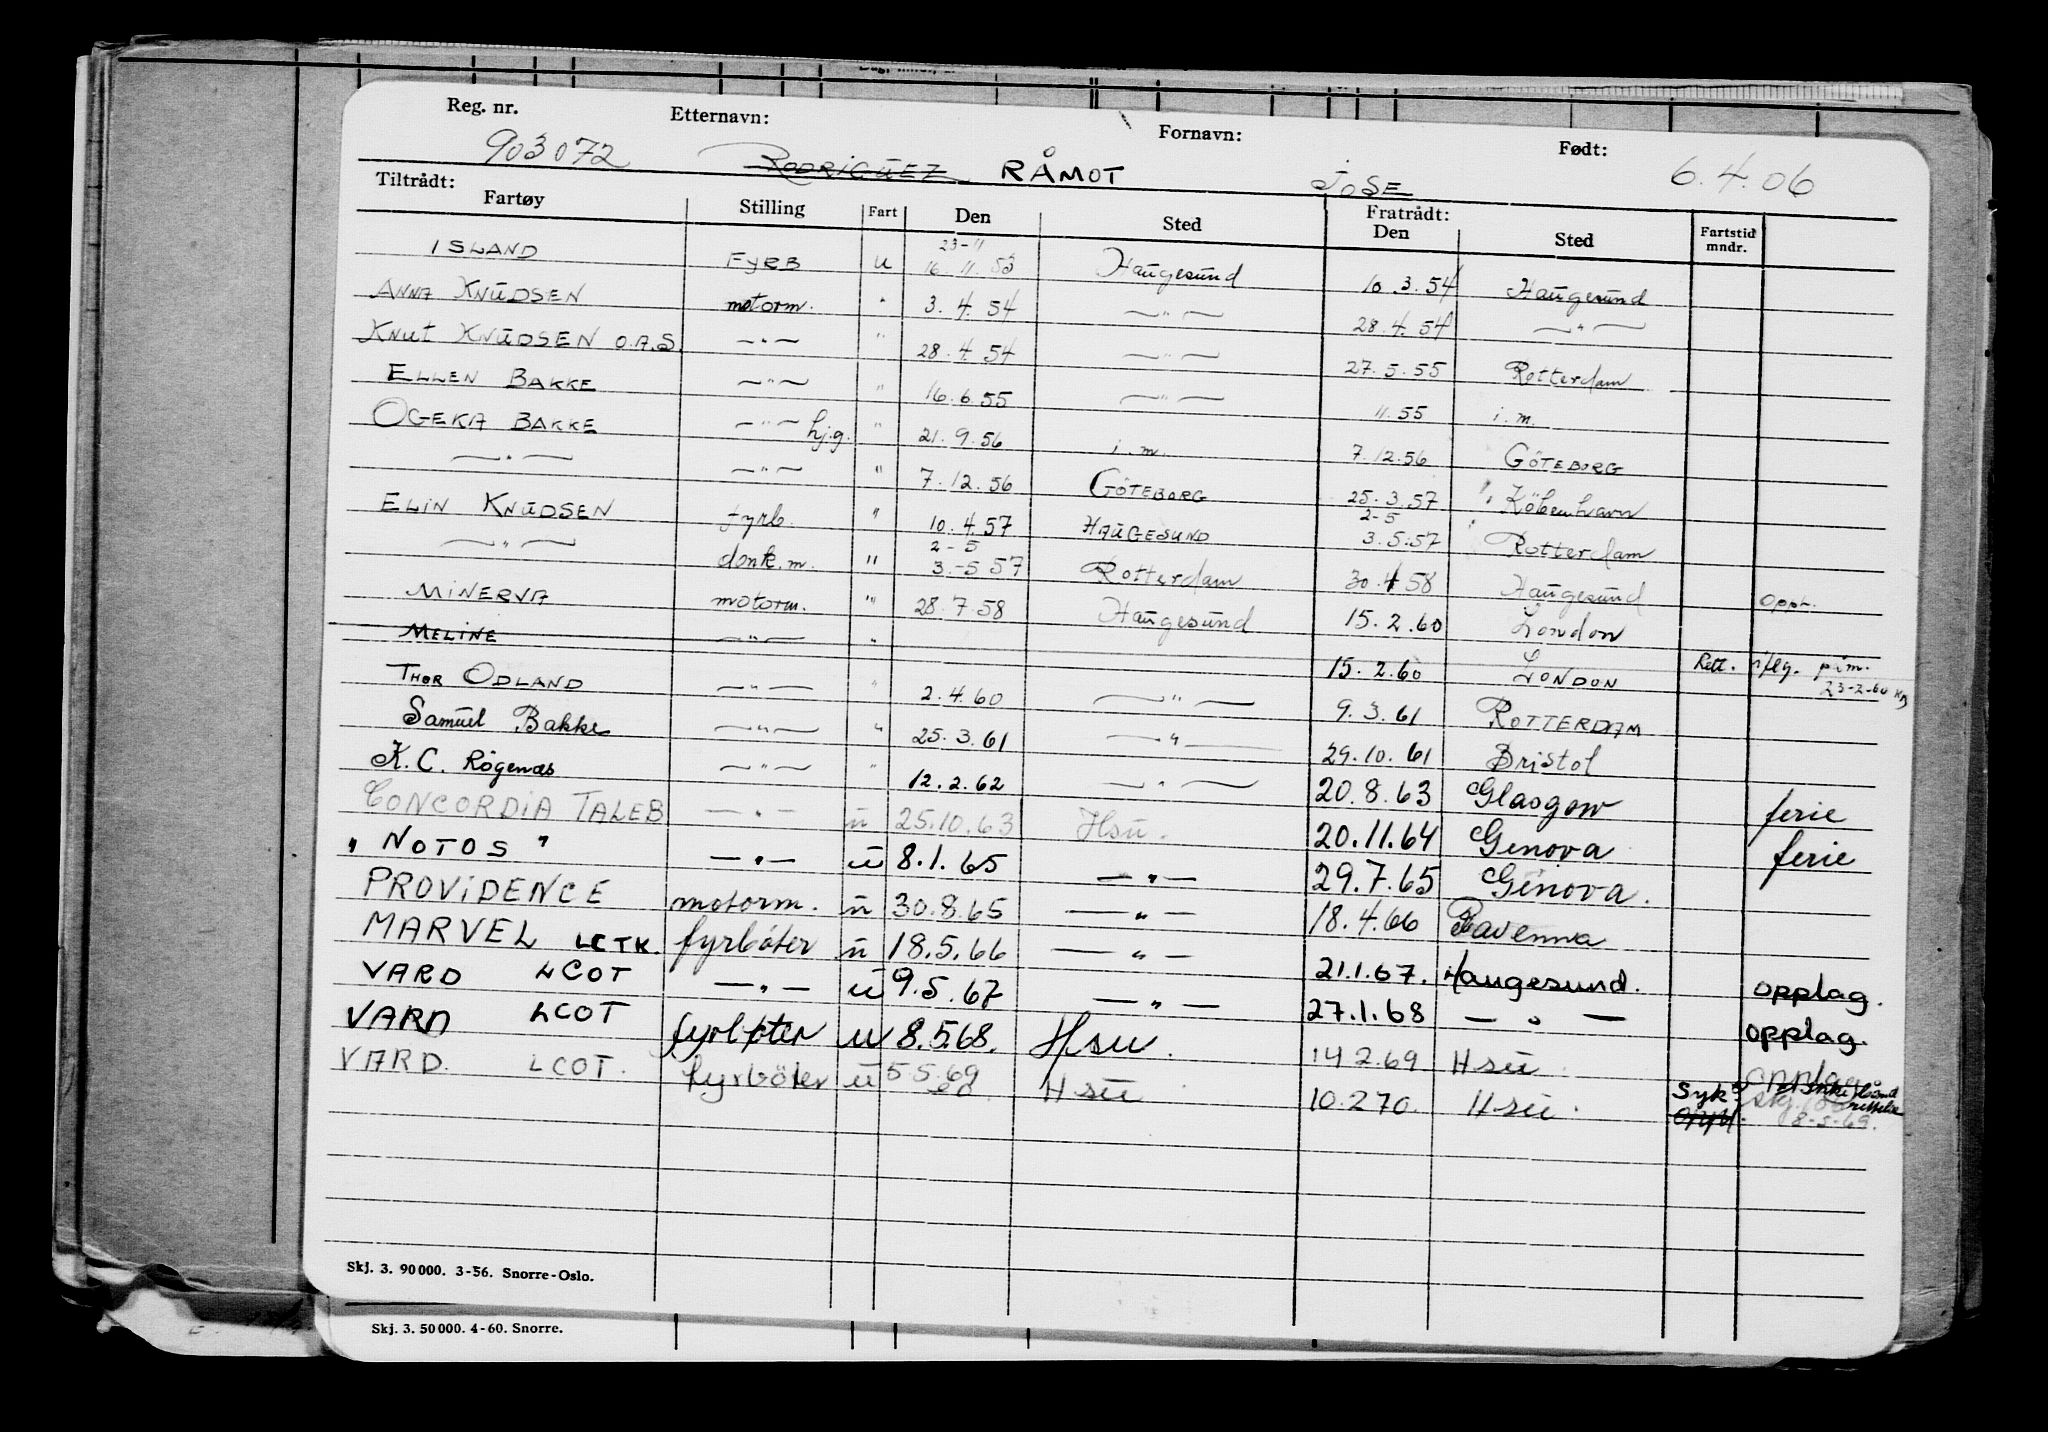 Reg. nr. Etternavn: Fornavn: Født:
903072 RODRIGUEZ RÅMOT JOSE 6.4.06
Tiltrådt: Fratrådt:
Fartøy Stilling Fart Den Sted Den Sted Fartstid mndr.
23-11
ISLAND FYRB u 16.11.53 Haugesund 10.3.54 Haugesund
ANNA KNUDSEN motorm. " 3.4.54 —"— 28.4.54 —"—
KNUT KNUDSEN O.A.S. —"— " 28.4.54 —"— 27.5.55 Rotterdam
ELLEN BAKKE —"— " 16.6.55 —"— 11.55 i.m.
OGEKA BAKKE —"— hj.g. " 21.9.56 i.m. 7.12.56 GÖTEBORG
—"— —"— " 7.12.56 GÖTEBORG 25.3.57 Köbenhavn
2-5
ELIN KNUDSEN fyrb. " 10.4.57 HAUGESUND 3.5.57 Rotterdam
2-5
—"— donk.m. " 3.-5 57 Rotterdam 30.4 58 Haugesund oppl.
MINERVA motorm. " 28.7.58 Haugesund 15.2.60 London
MELINE —"— " 15.2.60 LONDON Rett. iflg. p.i.m.
23-2-60
THOR ODLAND —"— " 2.4.60 —"— 9.3.61 ROTTERDAM
Samuel Bakke —"— " 25.3.61 —"— 29.10.61 Bristol
K.C. Rogenæs —"— " 12.2.62 —"— 20.8.63 Glasgow ferie
CONCORDIA TALEB —"— u 25.10.63 Hsu. 20.11.64 Genova ferie
" NOTOS " —"— u 8.1.65 —"— 29.7.65 Genova.
PROVIDENCE motorm. u 30.8.65 —"— 18.4.66 Ravenna
MARVEL LCTK. fyrbøter u 18.5.66 —"— 21.1.67. Haugesund. opplag.
VARD LCOT —"— u 9.5.67 —"— 27.1.68 —"— opplag.
VARD LCOT fyrbøter u 8.5.68. Hsu. 14 2.69 Hsu opplag
VARD. LCOT. fyrböter u 5 5.69 Hsu 10.2 70. Hsu. Syk
8-5-69.
Skj. 3. 90000. 3-56. Snorre-Oslo.
Skj. 3. 50000. 4-60. Snorre.